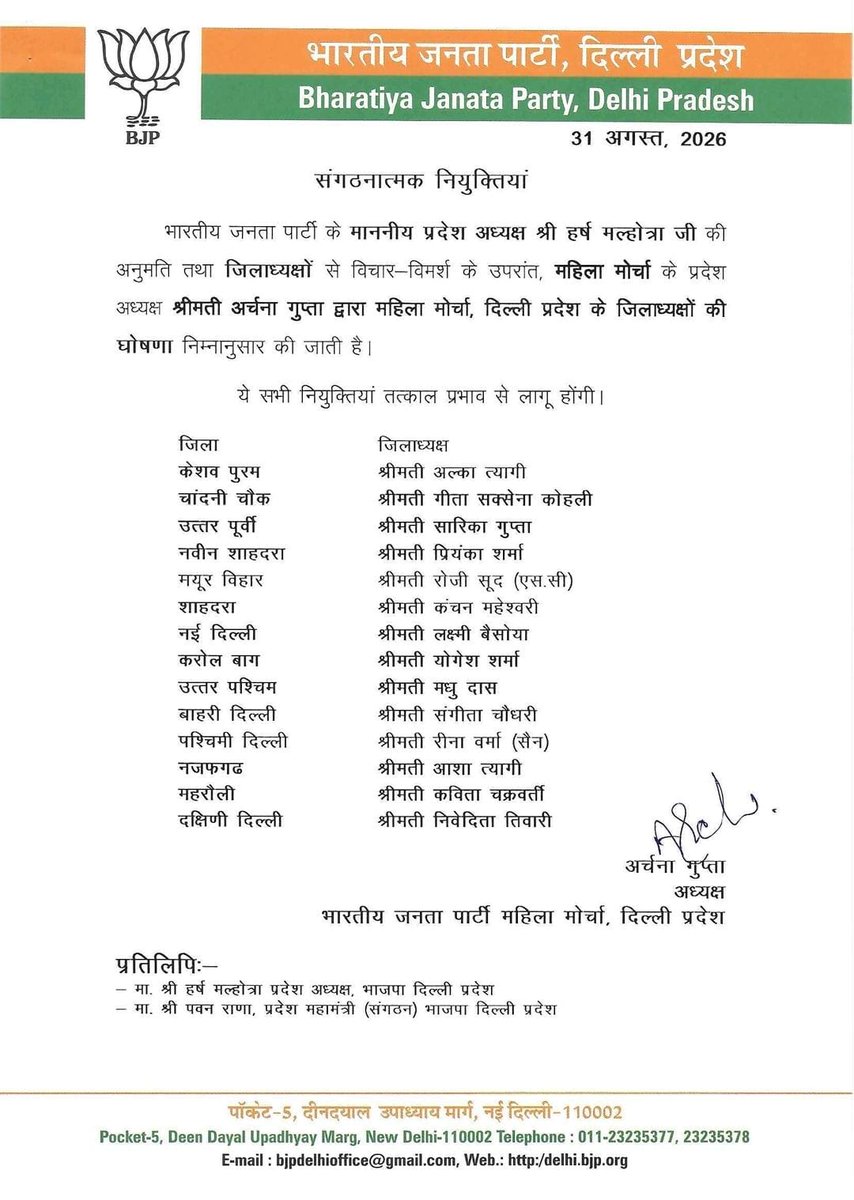 भारतीय जनता पार्टी, दिल्ली प्रदेश
Bharatiya Janata Party, Delhi Pradesh
BJP
31 अगस्त, 2026
संगठनात्मक नियुक्तियां
भारतीय जनता पार्टी के माननीय प्रदेश अध्यक्ष श्री हर्ष मल्होत्रा जी की
अनुमति तथा जिलाध्यक्षों से विचार–विमर्श के उपरांत, महिला मोर्चा के प्रदेश
अध्यक्ष श्रीमती अर्चना गुप्ता द्वारा महिला मोर्चा, दिल्ली प्रदेश के जिलाध्यक्षों की
घोषणा निम्नानुसार की जाती है।
ये सभी नियुक्तियां तत्काल प्रभाव से लागू होंगी।
जिला जिलाध्यक्ष
केशव पुरम श्रीमती अल्का त्यागी
चांदनी चौक श्रीमती गीता सक्सेना कोहली
उत्तर पूर्वी श्रीमती सारिका गुप्ता
नवीन शाहदरा श्रीमती प्रियंका शर्मा
मयूर विहार श्रीमती रोजी सूद (एस.सी)
शाहदरा श्रीमती कंचन महेश्वरी
नई दिल्ली श्रीमती लक्ष्मी बैसोया
करोल बाग श्रीमती योगेश शर्मा
उत्तर पश्चिम श्रीमती मधु दास
बाहरी दिल्ली श्रीमती संगीता चौधरी
पश्चिमी दिल्ली श्रीमती रीना वर्मा (सैन)
नजफगढ श्रीमती आशा त्यागी
महरौली श्रीमती कविता चक्रवर्ती
दक्षिणी दिल्ली श्रीमती निवेदिता तिवारी
अर्चना गुप्ता
अध्यक्ष
भारतीय जनता पार्टी महिला मोर्चा, दिल्ली प्रदेश
प्रतिलिपिः–
– मा. श्री हर्ष मल्होत्रा प्रदेश अध्यक्ष, भाजपा दिल्ली प्रदेश
– मा. श्री पवन राणा, प्रदेश महामंत्री (संगठन) भाजपा दिल्ली प्रदेश
पॉकेट-5, दीनदयाल उपाध्याय मार्ग, नई दिल्ली-110002
Pocket-5, Deen Dayal Upadhyay Marg, New Delhi-110002 Telephone : 011-23235377, 23235378
E-mail : bjpdelhioffice@gmail.com, Web.: http:/delhi.bjp.org